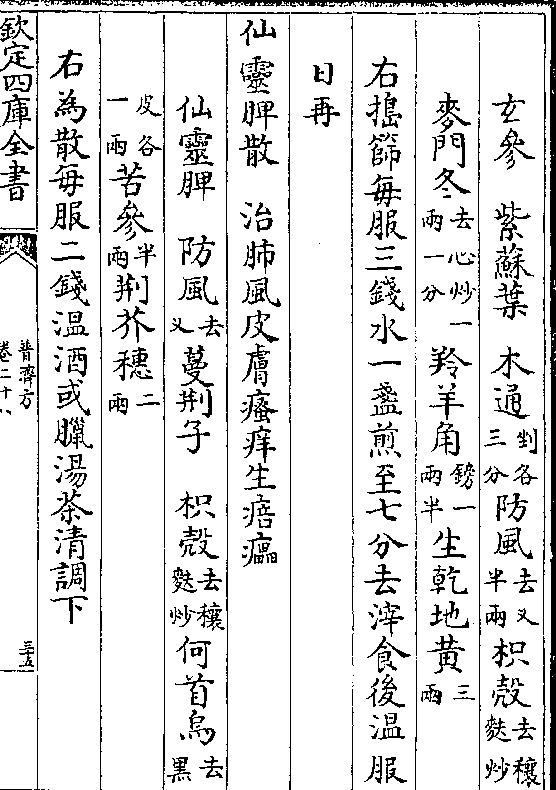 玄參　紫蘇葉　木通剉各三分防風去叉半兩枳殼去穰麩炒
麥門冬去心炒一兩一分羚羊角鎊一兩半生乾地黄三兩
右搗篩每服三錢水一盞煎至七分去滓食後温服
日再
仙靈脾散　治肺風皮膚瘙痒生㾦㿔
仙靈脾　防風去叉蔓荆子　枳殼去穰麩炒何首烏去黑
皮各一兩苦參半兩荆芥穗二兩
右為散每服二錢温酒或臘湯茶清調下
欽定四庫全書
普濟方
卷二十八
三十五